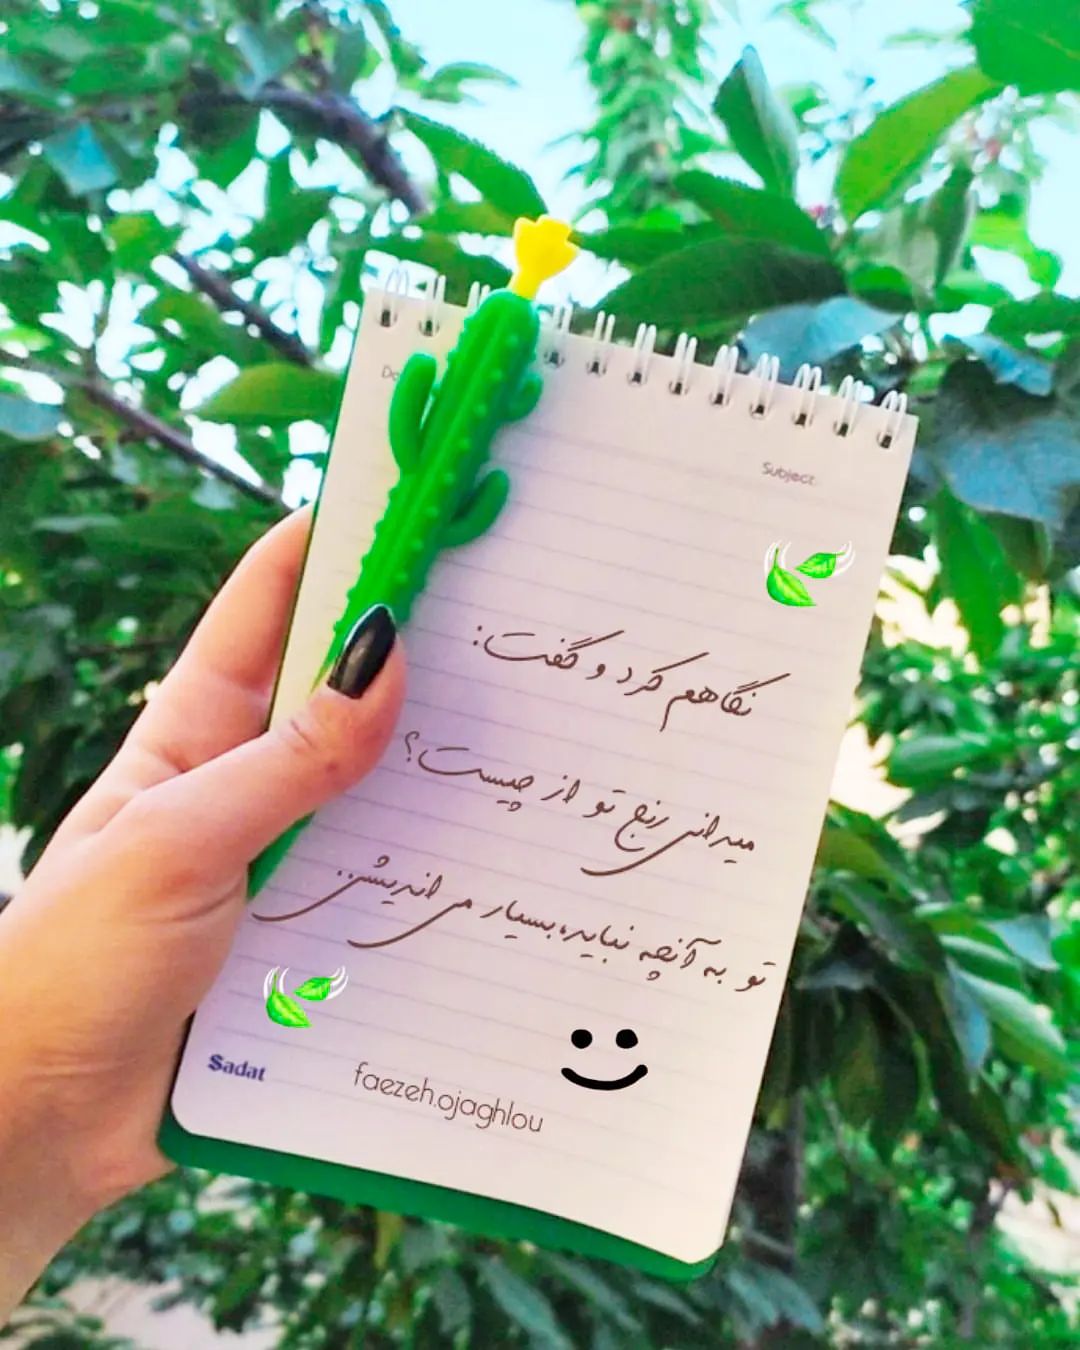 Da
Subject:
نگاهم کرد و گفت:
میدانی رنج تو از چیست؟
تو به آنچه نباید، بسیار می اندیشی..
Sadat
faezeh.ojaghlou